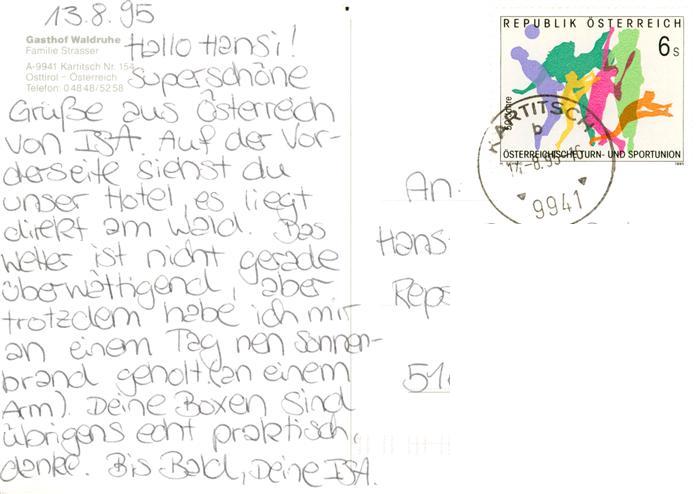 13.8.95
Gasthof Waldruhe
Familie Strasser
A-9941 Kartitsch Nr. 154
Osttirol – Österreich
Telefon: 04848/5258
Hallo Hansi!
Superschöne
Grüße aus Österreich
von ISA. Auf der Vor-
derseite siehst du
unser Hotel, es liegt
direkt am Wald. Das
Wetter ist nicht gerade
überwältigend, aber
trotzdem habe ich mir
an einem Tag nen Sonnen-
brand geholt (an einem
Arm). Deine Boxen sind
übrigens echt praktisch,
danke. Bis Bald, Deine ISA.
REPUBLIK ÖSTERREICH
6 S
ÖSTERREICHISCHE TURN- UND SPORTUNION
KARTITSCH
b
9941
An:
Hans-
Repe
51